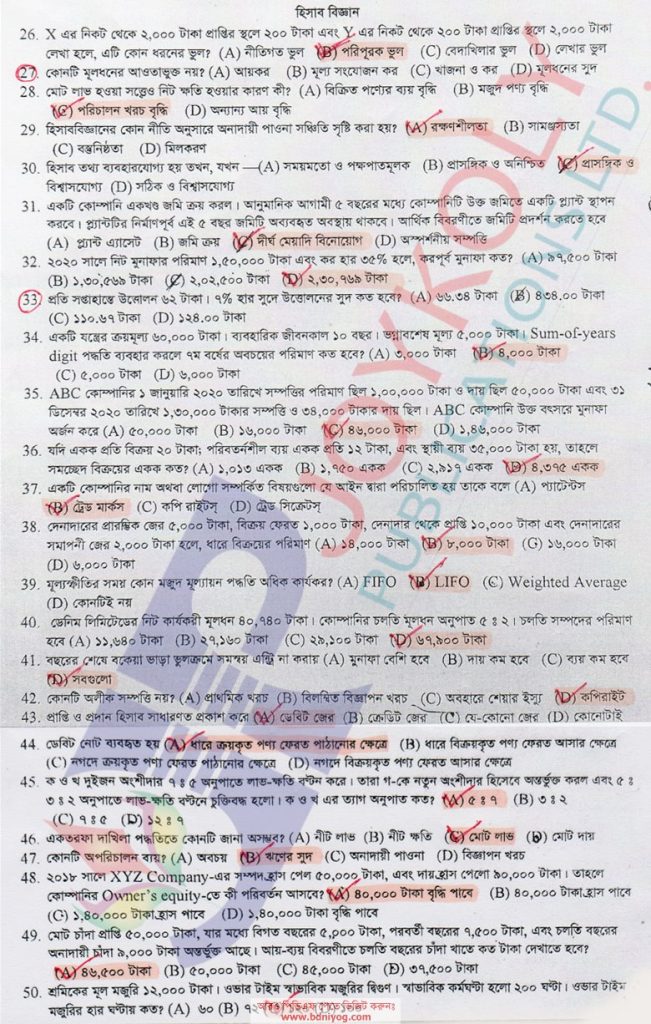 হিসাব বিজ্ঞান
26. X এর নিকট থেকে ২,০০০ টাকা প্রাপ্তির স্থলে ২০০ টাকা এবং Y এর নিকট থেকে ২০০ টাকা প্রাপ্তির স্থলে ২,০০০ টাকা
লেখা হলে, এটি কোন ধরনের ভুল? (A) নীতিগত ভুল (B) পরিপূরক ভুল (C) বেদাখিলার ভুল (D) লেখার ভুল
27. কোনটি মূলধনের আওতাভুক্ত নয়? (A) আয়কর (B) মূল্য সংযোজন কর (C) খাজনা ও কর (D) মূলধনের সুদ
28. মোট লাভ হওয়া সত্ত্বেও নিট ক্ষতি হওয়ার কারণ কী? (A) বিক্রিত পণ্যের ব্যয় বৃদ্ধি (B) মজুদ পণ্য বৃদ্ধি
(C) পরিচালন খরচ বৃদ্ধি (D) অন্যান্য আয় বৃদ্ধি
29. হিসাববিজ্ঞানের কোন নীতি অনুসারে অনাদায়ী পাওনা সঞ্চিতি সৃষ্টি করা হয়? (A) রক্ষণশীলতা (B) সামঞ্জস্যতা
(C) বস্তুনিষ্ঠতা (D) মিলকরণ
30. হিসাব তথ্য ব্যবহারযোগ্য হয় তখন, যখন —(A) সময়মতো ও পক্ষপাতমূলক (B) প্রাসঙ্গিক ও অনিশ্চিত (C) প্রাসঙ্গিক ও
বিশ্বাসযোগ্য (D) সঠিক ও বিশ্বাসযোগ্য
31. একটি কোম্পানি একখণ্ড জমি ক্রয় করল। আনুমানিক আগামী ৫ বছরের মধ্যে কোম্পানিটি উক্ত জমিতে একটি প্ল্যান্ট স্থাপন
করবে। প্ল্যান্টটির নির্মাণপূর্ব এই ৫ বছর জমিটি অব্যবহৃত অবস্থায় থাকবে। আর্থিক বিবরণীতে জমিটি প্রদর্শন করতে হবে
(A) প্ল্যান্ট এ্যাসেট (B) জমি ক্রয় (C) দীর্ঘ মেয়াদি বিনোয়োগ (D) অস্পর্শনীয় সম্পত্তি
32. ২০২০ সালে নিট মুনাফার পরিমাণ ১,৫০,০০০ টাকা এবং কর হার ৩৫% হলে, করপূর্ব মুনাফা কত? (A) ৯৭,৫০০ টাকা
(B) ১,৩০,৫৬৯ টাকা (C) ২,০২,৫০০ টাকা (D) ২,৩০,৭৬৯ টাকা
33. প্রতি সপ্তাহান্তে উত্তোলন ৬২ টাকা। ৭% হার সুদে উত্তোলনের সুদ কত হবে? (A) ৬৬.৩৪ টাকা (B) ৪৩৪.০০ টাকা
(C) ১১০.৬৭ টাকা (D) ১২৪.০০ টাকা
34. একটি যন্ত্রের ক্রয়মূল্য ৬০,০০০ টাকা। ব্যবহারিক জীবনকাল ১০ বছর। ভগ্নাবশেষ মূল্য ৫,০০০ টাকা। Sum-of-years
digit পদ্ধতি ব্যবহার করলে ৭ম বর্ষের অবচয়ের পরিমাণ কত হবে? (A) ৩,০০০ টাকা (B) ৪,০০০ টাকা
(C) ৫,০০০ টাকা (D) ৬,০০০ টাকা
35. ABC কোম্পানির ১ জানুয়ারি ২০২০ তারিখে সম্পত্তির পরিমাণ ছিল ১,০০,০০০ টাকা ও দায় ছিল ৫০,০০০ টাকা এবং ৩১
ডিসেম্বর ২০২০ তারিখে ১,৩০,০০০ টাকার সম্পত্তি ও ৩৪,০০০ টাকার দায় ছিল। ABC কোম্পানি উক্ত বৎসরে মুনাফা
অর্জন করে (A) ৫০,০০০ টাকা (B) ১৬,০০০ টাকা (C) ৪৬,০০০ টাকা (D) ১,৪৬,০০০ টাকা
36. যদি একক প্রতি বিক্রয় ২০ টাকা; পরিবর্তনশীল ব্যয় একক প্রতি ১২ টাকা, এবং স্থায়ী ব্যয় ৩৫,০০০ টাকা হয়, তাহলে
সমচ্ছেদ বিক্রয়ের একক কত? (A) ১,০১৩ একক (B) ১,৭৫০ একক (C) ২,৯১৭ একক (D) ৪,৩৭৫ একক
37. একটি কোম্পানির নাম অথবা লোগো সম্পর্কিত বিষয়গুলো যে আইন দ্বারা পরিচালিত হয় তাকে বলে (A) প্যাটেন্টস
(B) ট্রেড মার্কস (C) কপি রাইটস্ (D) ট্রেড সিক্রেটস্
38. দেনাদারের প্রারম্ভিক জের ৫,০০০ টাকা, বিক্রয় ফেরত ১,০০০ টাকা, দেনাদার থেকে প্রাপ্তি ১০,০০০ টাকা এবং দেনাদারের
সমাপনী জের ২,০০০ টাকা হলে, ধারে বিক্রয়ের পরিমাণ (A) ১৪,০০০ টাকা (B) ৮,০০০ টাকা (G) ১৬,০০০ টাকা
(D) ৬,০০০ টাকা
39. মূল্যস্ফীতির সময় কোন মজুদ মূল্যায়ন পদ্ধতি অধিক কার্যকর? (A) FIFO (B) LIFO (C) Weighted Average
(D) কোনটিই নয়
40. ডেনিম লিমিটেডের নিট কার্যকরী মূলধন ৪০,৭৪০ টাকা। কোম্পানির চলতি মূলধন অনুপাত ৫ ঃ ২। চলতি সম্পদের পরিমাণ
হবে (A) ১১,৬৪০ টাকা (B) ২৭,১৬০ টাকা (C) ২৯,১০০ টাকা (D) ৬৭,৯০০ টাকা
41. বছরের শেষে বকেয়া ভাড়া ভুলক্রমে সমন্বয় এন্ট্রি না করায় (A) মুনাফা বেশি হবে (B) দায় কম হবে (C) ব্যয় কম হবে
(D) সবগুলো
42. কোনটি অলীক সম্পত্তি নয়? (A) প্রাথমিক খরচ (B) বিলম্বিত বিজ্ঞাপন খরচ (C) অবহারে শেয়ার ইস্যু (D) কপিরাইট
43. প্রাপ্তি ও প্রদান হিসাব সাধারণত প্রকাশ করে (A) ডেবিট জের (B) ক্রেডিট জের (C) যে-কোনো জের (D) কোনোটাই
44. ডেবিট নোট ব্যবহৃত হয় (A) ধারে ক্রয়কৃত পণ্য ফেরত পাঠানোর ক্ষেত্রে (B) ধারে বিক্রয়কৃত পণ্য ফেরত আসার ক্ষেত্রে
(C) নগদে ক্রয়কৃত পণ্য ফেরত পাঠানোর ক্ষেত্রে (D) নগদে বিক্রয়কৃত পণ্য ফেরত আসার ক্ষেত্রে
45. ক ও খ দুইজন অংশীদার ৭ ঃ ৫ অনুপাতে লাভ-ক্ষতি বণ্টন করে। তারা গ-কে নতুন অংশীদার হিসেবে অন্তর্ভুক্ত করল এবং ৫ ঃ
৩ ঃ ২ অনুপাতে লাভ-ক্ষতি বণ্টনে চুক্তিবদ্ধ হলো। ক ও খ এর ত্যাগ অনুপাত কত? (A) ৫ ঃ ৭ (B) ৩ ঃ ২
(C) ৭ ঃ ৫ (D) ১২ ঃ ৭
46. একতরফা দাখিলা পদ্ধতিতে কোনটি জানা অসম্ভব? (A) নীট লাভ (B) নীট ক্ষতি (C) মোট লাভ (D) মোট দায়
47. কোনটি অপরিচালন ব্যয়? (A) অবচয় (B) ঋণের সুদ (C) অনাদায়ী পাওনা (D) বিজ্ঞাপন খরচ
48. ২০১৮ সালে XYZ Company-এর সম্পদ হ্রাস পেল ৫০,০০০ টাকা, এবং দায় হ্রাস পেলো ৯০,০০০ টাকা। তাহলে
কোম্পানির Owner's equity-তে কী পরিবর্তন আসবে? (A) ৪০,০০০ টাকা বৃদ্ধি পাবে (B) ৪০,০০০ টাকা হ্রাস পাবে
(C) ১,৪০,০০০ টাকা হ্রাস পাবে (D) ১,৪০,০০০ টাকা বৃদ্ধি পাবে
49. মোট চাঁদা প্রাপ্তি ৫০,০০০ টাকা, যার মধ্যে বিগত বছরের ৫,০০০ টাকা, পরবর্তী বছরের ৭,৫০০ টাকা, এবং চলতি বছরের
অনাদায়ী চাঁদা ৯,০০০ টাকা অন্তর্ভুক্ত আছে। আয়-ব্যয় বিবরণীতে চলতি বছরের চাঁদা খাতে কত টাকা দেখাতে হবে?
(A) ৪৬,৫০০ টাকা (B) ৫০,০০০ টাকা (C) ৪৫,০০০ টাকা (D) ৩৭,৫০০ টাকা
50. শ্রমিকের মূল মজুরি ১২,০০০ টাকা। ওভার টাইম স্বাভাবিক মজুরির দ্বিগুণ। স্বাভাবিক কর্মঘণ্টা হলো ২০০ ঘণ্টা। ওভার টাইম
মজুরির হার ঘণ্টায় কত? (A) ৬০ (B)
www.bdniyog.com
JOYKOLY
PUBLICATIONS LTD.